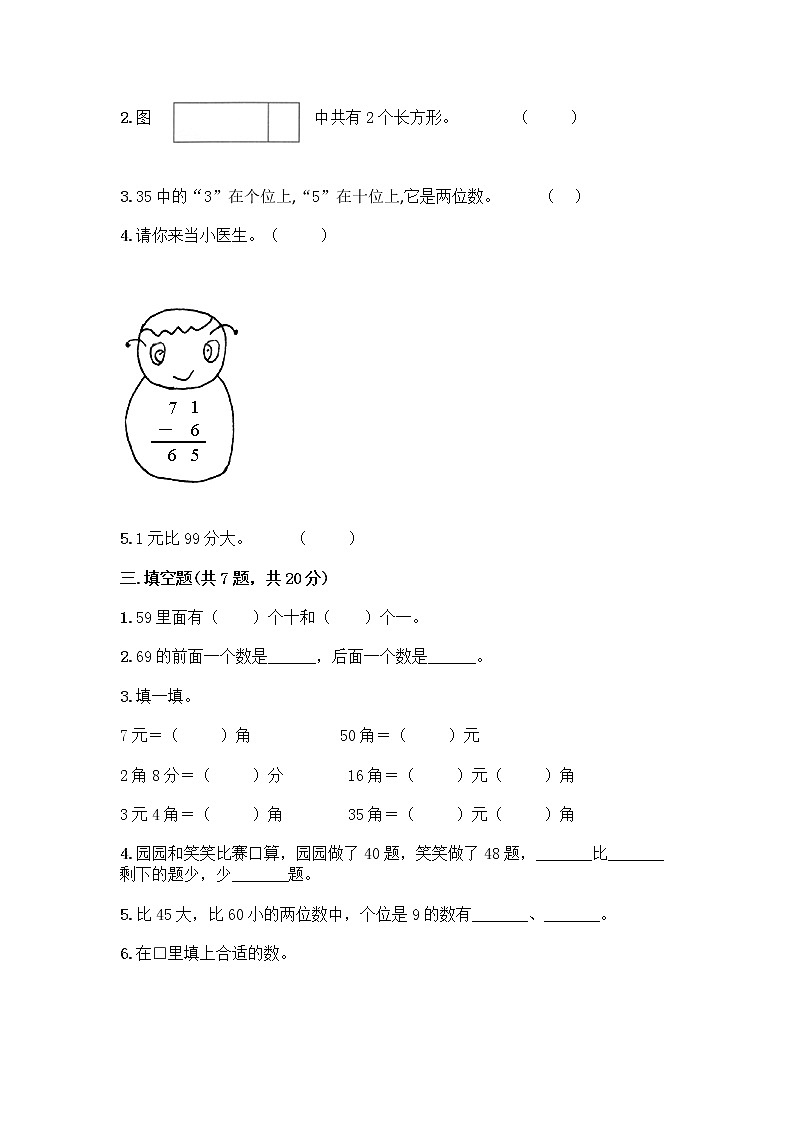 2.图 中共有2个长方形。 ( )
3.35中的“3”在个位上,“5”在十位上,它是两位数。 ( )
4.请你来当小医生。( )
7 1
- 6
6 5
5.1元比99分大。 ( )
三.填空题(共7题，共20分)
1.59里面有( )个十和( )个一。
2.69的前面一个数是______，后面一个数是______。
3.填一填。
7元＝( )角 50角＝( )元
2角8分＝( )分 16角＝( )元( )角
3元4角＝( )角 35角＝( )元( )角
4.园园和笑笑比赛口算，园园做了40题，笑笑做了48题，_______比_______
剩下的题少，少_______题。
5.比45大，比60小的两位数中，个位是9的数有_______、_______。
6.在□里填上合适的数。